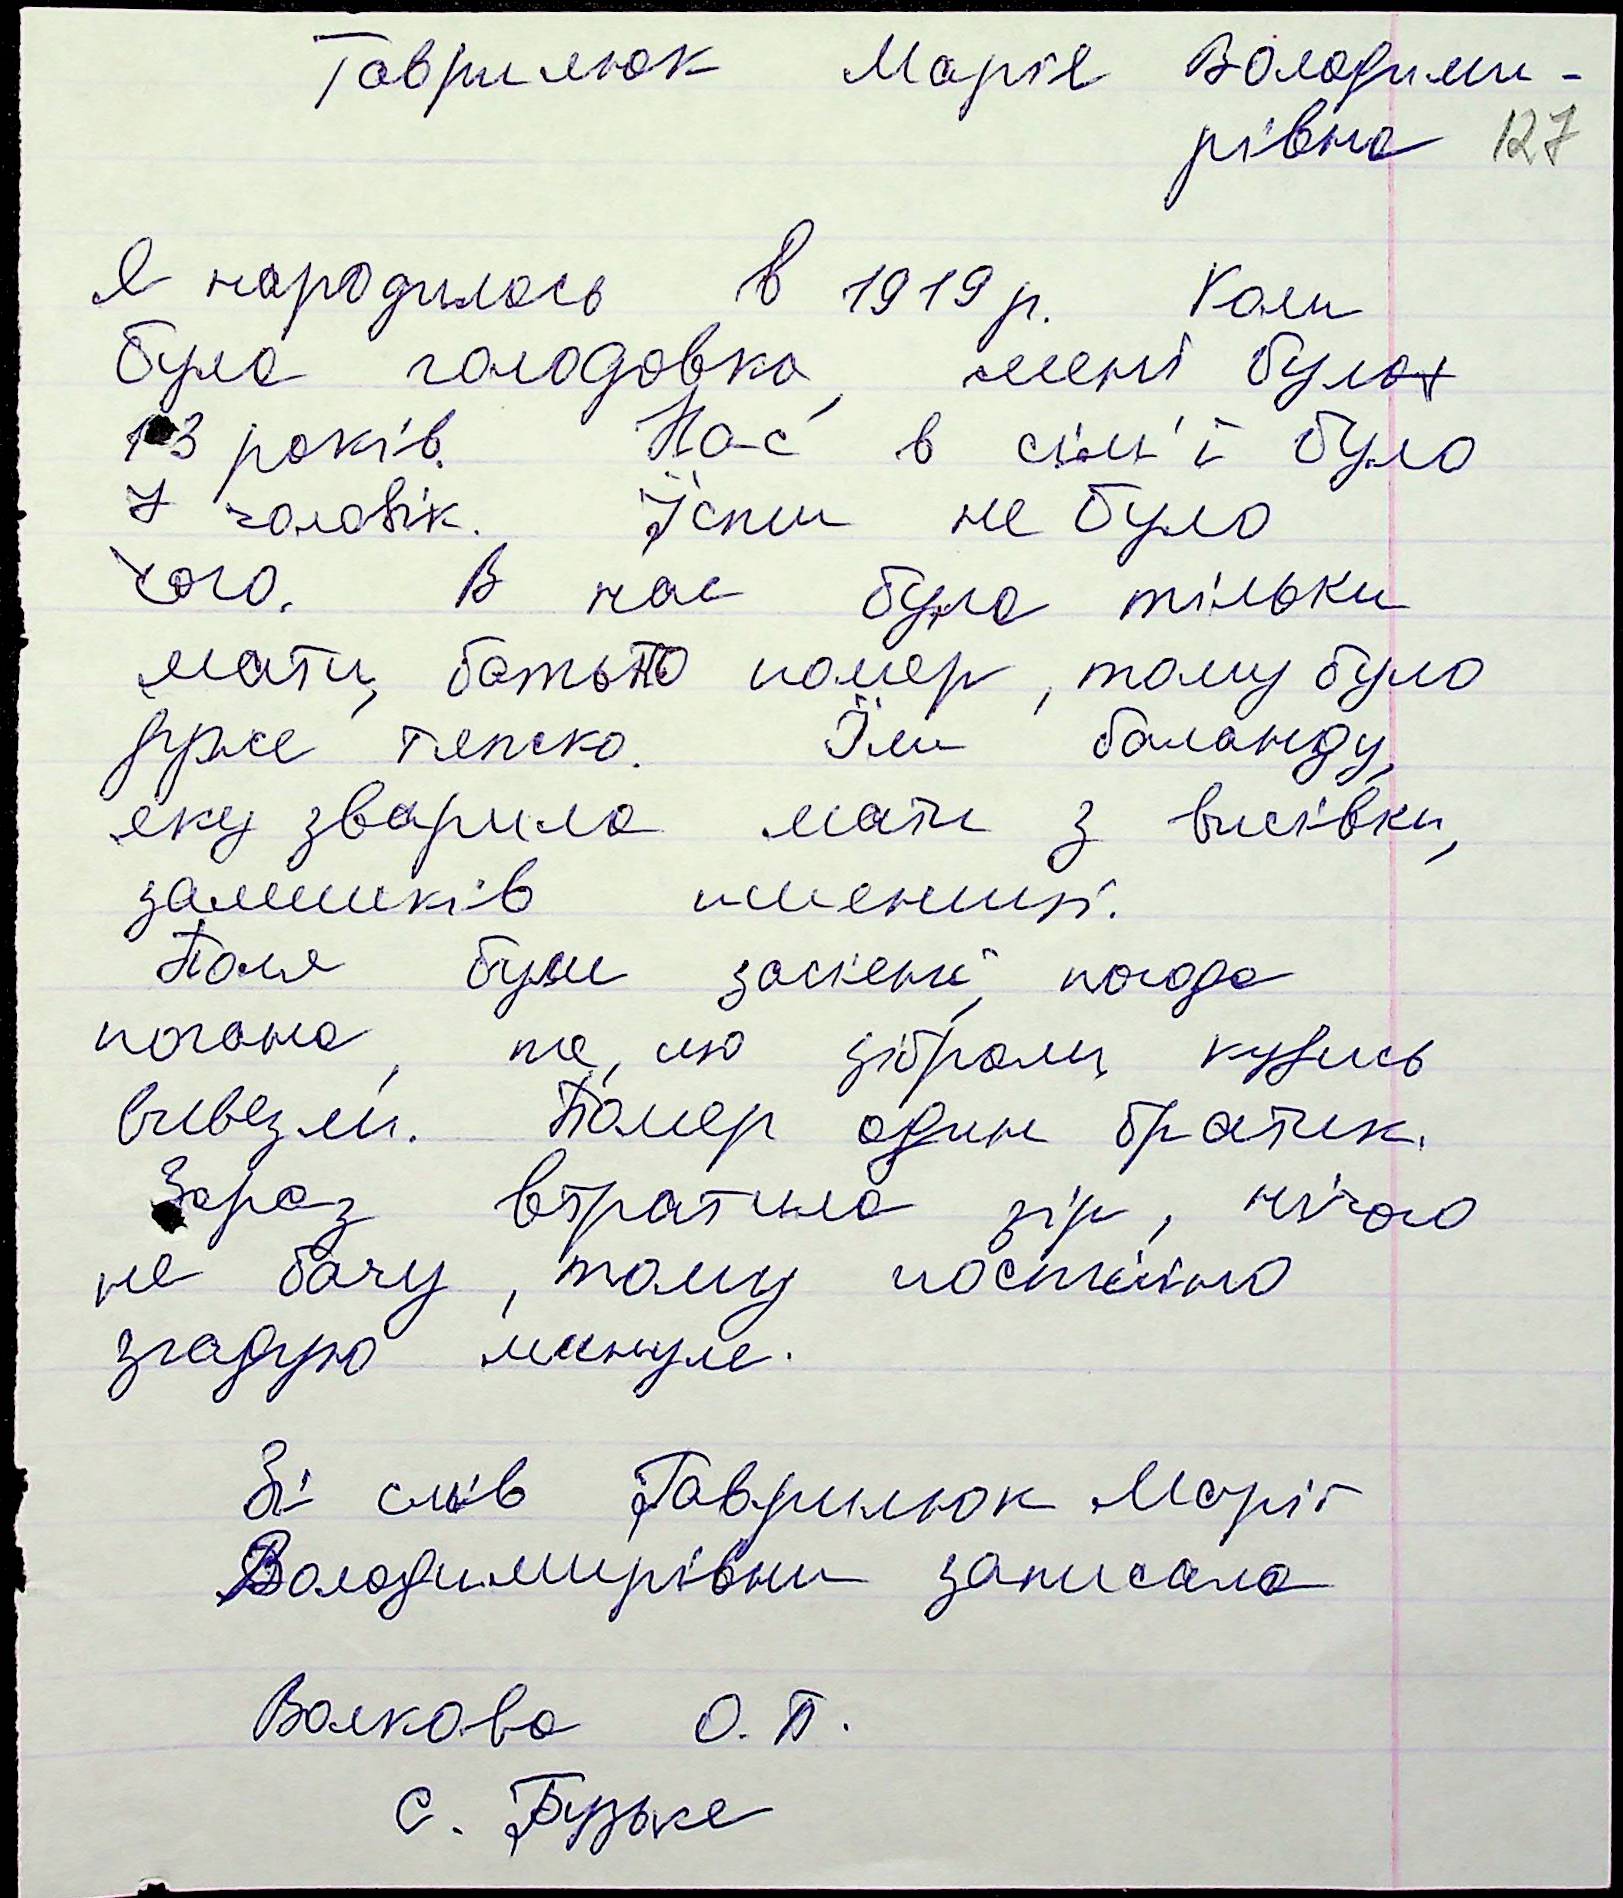 Гаврилюк Марія Володими-
рівна 127
Я народилась в 1919 р. Коли
була голодовка, мені було
13 років. Нас в сім'ї було
7 чоловік. Їсти не було
чого. В нас була тільки
мати, батько помер, тому було
дуже тяжко. Їли баланду,
яку зварила мати з висівки,
залишків пшениці.
Поля були засіяні, погода
погана, те, що зібрали, кудись
вивезли. Помер один братик.
Зараз втратила зір, нічого
не бачу, тому постійно
згадую минуле.
Зі слів Гаврилюк Марії
Володимирівни записала
Волкова О. П.
с. Бузьке